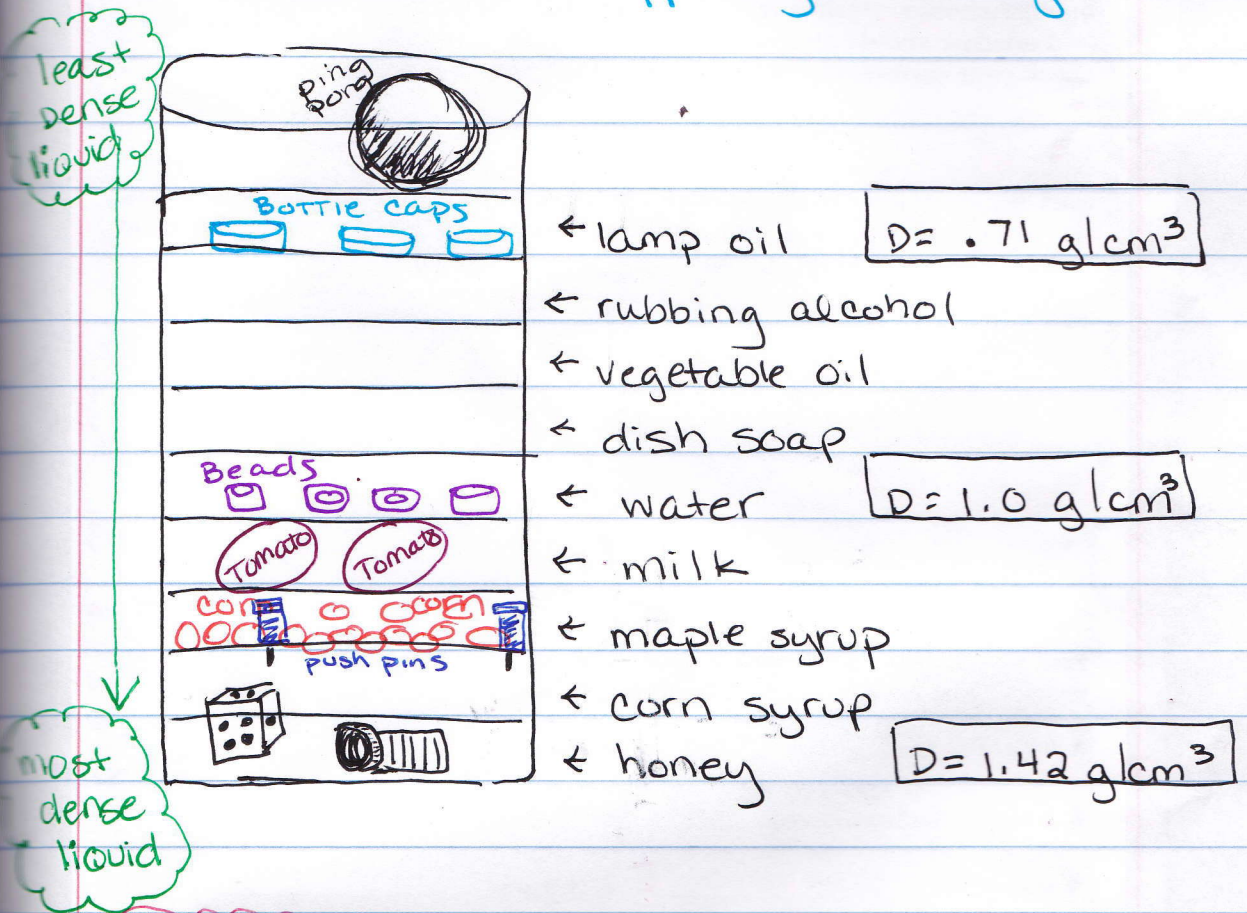 least
Dense
liquid
ping
pong
Bottle caps
← lamp oil
D= .71 g/cm³
← rubbing alcohol
← vegetable oil
← dish soap
Beads
← water
D= 1.0 g/cm³
Tomato
Tomato
← milk
corn
corn
← maple syrup
push pins
← corn syrup
← honey
D= 1.42 g/cm³
most
dense
liquid